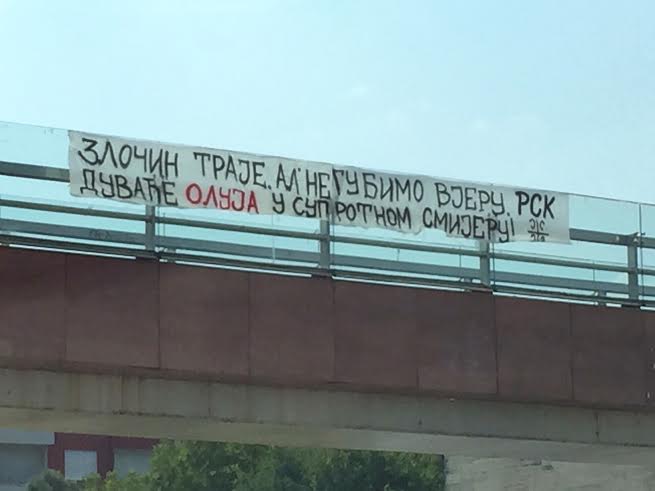 ЗЛОЧИН ТРАЈЕ. АЛ' НЕ ГУБИМО ВЈЕРУ. РСК
ДУВАЋЕ ОЛУЈА У СУПРОТНОМ СМИЈЕРУ!